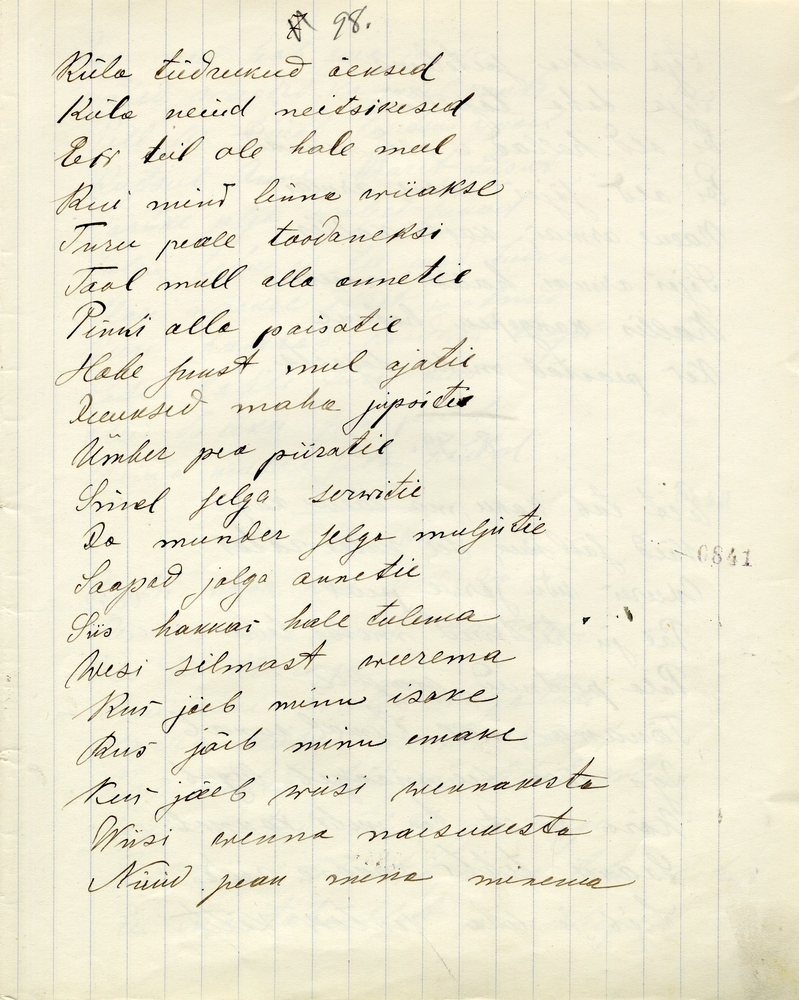 98.
Küla tüdrukud õeksed
Küla neiud neitsikesed
Eks teil ole hale meel
Kui mind linna wiiakse
Turu peale toodaneksi
Tool mull alla annetie
Pinki alla paisatie
Habe suust mul ajatie
Juuksed maha
Ümber pea piiratie
Sinel selga serwitie
Ja munder selga muljutie
Saapad jalga annetie
0841
Siis hakkas hale tulema
Wesi silmast weerema
Kus jäeb minu isake
Kus jäeb minu emake
Kus jäeb wiisi wennakesta
Wiisi wenna naisukesta
Nüüd pean mina minema